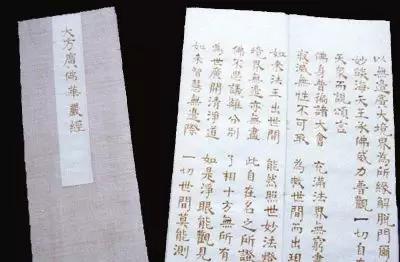 大方廣佛華嚴經
以無邊廣大境界為所緣解脫門爾
妙燄海天王承佛威力普觀一切自
天眾而說頌言
佛身普徧諸大會　充滿法界無窮盡
寂滅無性不可取　為救世間而出現
如來法王出世間　能然照世妙法燈
境界無邊亦無盡　此自在名之所證
佛不思議離分別　了相十方無所有
為世廣開清淨道　如是淨眼能觀見
如來智慧無邊際　一切世間莫能測